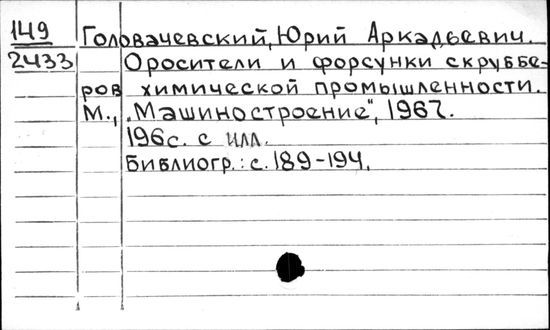 149 Головачевский, Юрий Аркадьевич.
2433 Оросители и форсунки скруббе-
ров химической промышленности.
М., „Машиностроение“, 1967.
196с. с илл.
Библиогр.: с. 189-194.